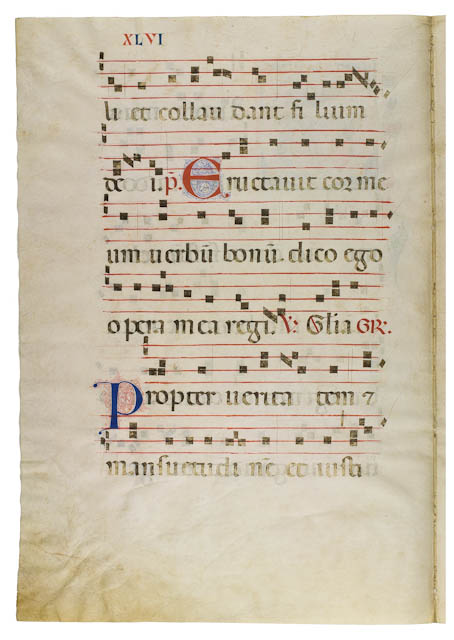 XLVI
li et collau dant fi lium
p. Eructavit cor me
um verbū bonū dico ego
opera mea regi. V. Glia GR.
Propter verita tem ⁊
mansuetudi nē et iusti